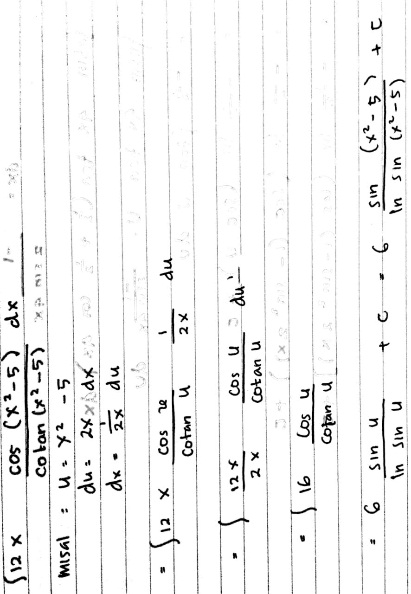 ∫ 12 x cos (x² - 5) / cotan (x² - 5) dx
misal : u = x² - 5
du = 2x dx
dx = 1 / 2x du
= ∫ 12 x cos u / cotan u 1 / 2x du
= ∫ 12 x / 2 x cos u / cotan u du
= ∫ 16 cos u / cotan u
= 6 sin u / ln sin u + c = 6 sin (x² - 5) / ln sin (x² - 5) + c